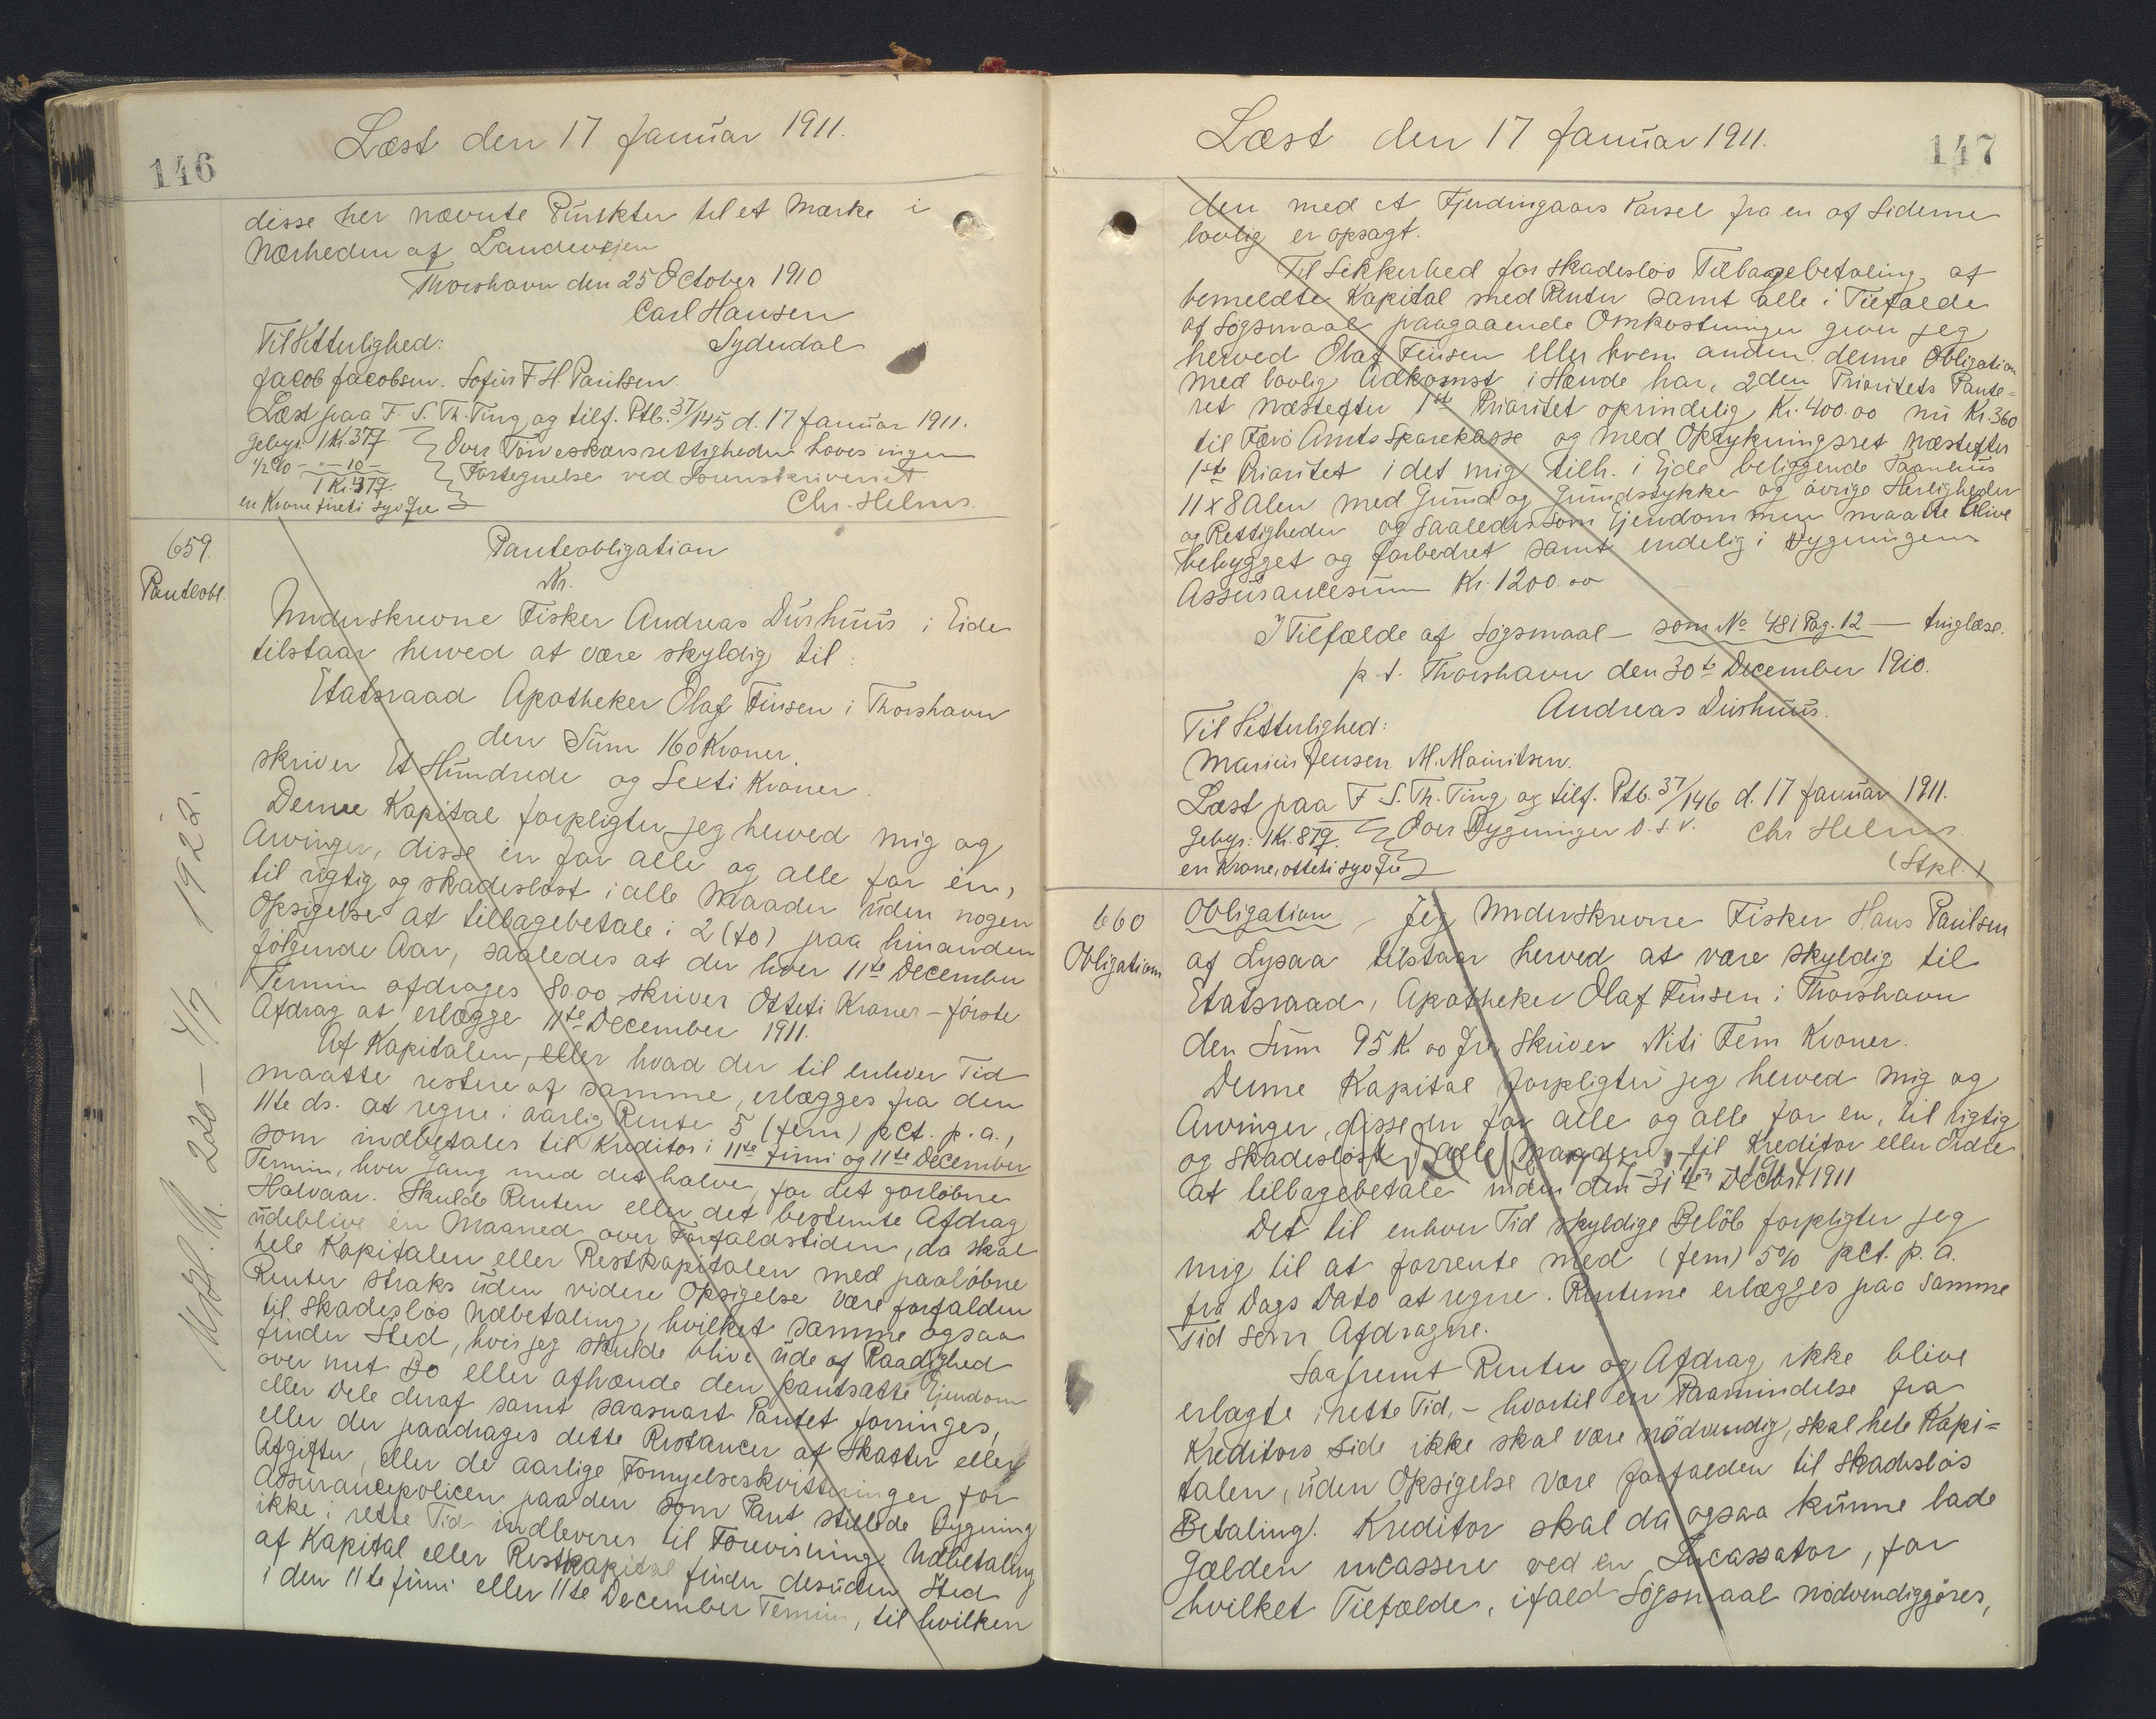 146
Læst den 17 Januar 1911.
disse her nævnte Punkter til et Mærke i
Nærheden af Landevejen
Thorshavn den 25 October 1910
Carl Hansen
Syderdal
Til Vitterlighed:
Jacob Jacobsen. Sofus F H. Paulsen.
Læst paa F. S. Th. Ting og tilf. Ptb. 37/145 d. 17 Januar 1911.
Gebyr. 1 Kr. 37 Ø
1/2 % - " - 10 -
1 Kr. 37 Ø
en Krone treti syv Øre
Over Törveskærsrettigheden haves ingen
Fortegnelse ved Sorenskriveriet
Chr. Helms.
659.
Panteobl.
Panteobligation
Nr.
Underskrevne Fisker Andreas Durhuus i Eide
tilstaar herved at være skyldig til:
Etatsraad Apotheker Olaf Finsen i Thorshavn
den Sum 160 Kroner.
skriver Et Hundrede og Sexti Kroner.
Denne Kapital forpligter jeg herved mig og
Arvinger, disse en for alle og alle for én,
til rigtig og skadesløst i alle Maader uden nogen
Opsigelse at tilbagebetale i 2 (to) paa hinanden
følgende Aar, saaledes at der hver 11te December
Termin afdrages 80.00 skriver Otteti Kroner - første
Afdrag at erlægge 11te December 1911.
Af Kapitalen, eller hvad der til enhver Tid
maatte restere af samme, erlægges fra den
11te ds. at regne i aarlig Rente 5 (fem) pCt. p.a.,
som indbetales til Kreditor i 11te Juni og 11te December
Termin, hver Gang med det halve, for det forløbne
Halvaar. Skulde Renten eller det bestemte Afdrag
udeblive én Maaned over Forfaldstiden, da skal
hele Kapitalen eller Restkapitalen med paaløbne
Renter straks uden videre Opsigelse være forfalden
til skadesløs Udbetaling, hvilket samme ogsaa
finder Sted, hvis jeg skulde blive ude af Raadighed
over mit Bo eller afhænde den pantsatte Ejendom
eller Dele deraf samt saasnart Pantet forringes,
eller der paadrages dette Restancer af Skatter eller
Afgifter, eller de aarlige Fornyelseskvitteringer for
Assurancepolicen paa den som Pant stillede Bygning
ikke i rette Tid indleveres til Forevisning. Udbetaling
af Kapital eller Restkapital finder desuden Sted
i den 11te Juni eller 11te December Termin, til hvilken
147
Læst den 17 Januar 1911.
den med et Fjerdingaars Varsel fra en af Siderne
lovlig er opsagt.
Til Sikkerhed for skadesløs Tilbagebetaling af
bemeldte Kapital med Renter samt alle i Tilfælde
af Søgsmaal paagaaende Omkostninger giver jeg
herved Olaf Finsen eller hvem anden denne Obligation
med lovlig Adkomst i Hænde har, 2den Prioritets Pante-
ret næstefter 1ste Prioritet oprindelig Kr. 400.00 nu Kr. 360
til Færø Amts Sparekasse og med Oprykningsret næstefter
1ste Prioritet i det mig tilh. i Ejde beliggende Vaanhus
11 x 8 Alen med Grund og Grundstykke og øvrige Herligheder
og Rettigheder og saaledes som Ejendommen maatte blive
bebygget og forbedret samt endelig i Bygningens
Assurancesum Kr. 1200.00
I Tilfælde af Søgsmaal - som No 481 Pag. 12 - tinglæse.
p.t. Thorshavn den 30te December 1910.
Andreas Durhuus.
Til Vitterlighed:
Marius Jensen M. Mouritsen.
Læst paa F S. Th. Ting og tilf. Ptb. 37/146 d. 17 Januar 1911.
Gebyr: 1 Kr. 87 Ø.
en Krone, otteti syv Øre
Over Bygninger D. S. V.
Chr Helms.
(Stpl.)
660
Obligation
Obligation, Jeg Underskrevne Fisker Hans Paulsen
af Lysaa tilstaar herved at være skyldig til
Etatsraad, Apotheker Olaf Finsen i Thorshavn
den Sum 95 K 00 Øre skriver Niti Fem Kroner.
Denne Kapital forpligter jeg herved mig og
Arvinger, disse en for alle og alle for en, til rigtig
og skadesløst i alle Maader, til Kreditor eller Ordre
at tilbagebetale inden den 31te Decbr. 1911
Det til enhver Tid skyldige Beløb forpligter jeg
mig til at forrente med (fem) 5% pCt. p.a.
fra Dags Dato at regne. Renterne erlægges paa samme
Tid som Afdragne.
Saafremt Renter og Afdrag ikke blive
erlagte i rette Tid, - hvortil en Paamindelse fra
Kreditors Side ikke skal være nødvendig, skal hele Kapi=
talen, uden Opsigelse være forfalden til skadesløs
Betaling. Kreditor skal da ogsaa kunne lade
Gælden incassere ved en Incassator, for
hvilket Tilfælde, ifald Søgsmaal nødvendiggøres,